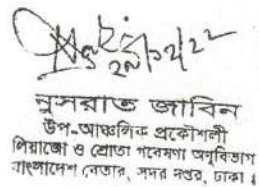 ২৯/১২/২২
নুসরাত জাবিন
উপ-আঞ্চলিক প্রকৌশলী
লিয়াজোঁ ও শ্রোতা গবেষণা অনুবিভাগ
বাংলাদেশ বেতার, সদর দপ্তর, ঢাকা।